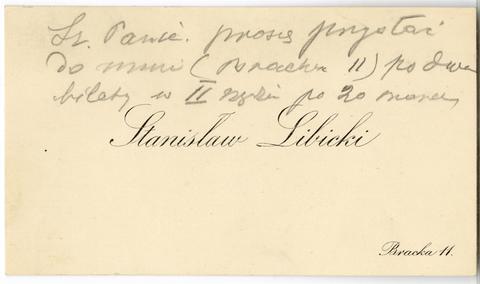 Sz. Panie. proszę przysłać
do mnie (Bracka 11) po dwa
bilety w II rzędzie po 20 marek
Stanisław Libicki
Bracka 11.